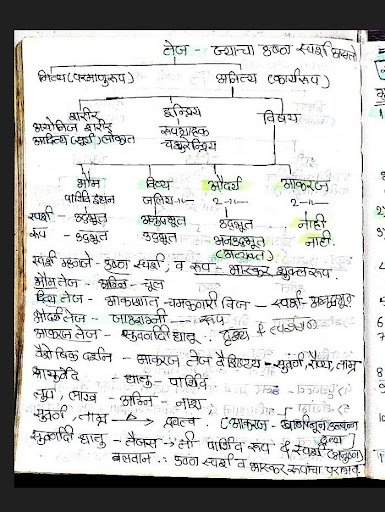 तेज - ज्याचा उष्ण स्पर्श असतो
नित्य (परमाणुरूप) अनित्य (कार्यरूप)
शरीर इन्द्रिय विषय
अयोनिज शरीर रूपग्राहक
आदित्य (सूर्य) लोकात चक्षुरेन्द्रिय
भौम दिव्य औदर्य आकरज
पार्थिव इंधन जलिय -"- 2 -"- 2 -"-
स्पर्श - उद्भूत अनुद्भूत उद्भूत नाही
रूप - उद्भूत उद्भूत अनुद्भूत नाही
(अव्यक्त)
स्पर्श म्हणजे - उष्ण स्पर्श, व रूप - भास्कर शुक्ल रूप.
भौम तेज - अग्नि - चूल
दिव्य तेज - आकाशात चमकणारी विज - स्पर्श - अनुद्भूत
औदर्य तेज - जाठराग्नी - रूप
आकरज तेज - सुवर्णादी धातू -
वैशेषिक दर्शन - आकरज तेज वैशिष्ट्य - सुवर्ण, रौप्य, ताम्र
आयुर्वेद - धातु - पार्थिव
तूप, लाख - अग्नि - नाश
सुवर्ण, ताम्र - द्रवत्व. (आकरज - खाणीतून उत्पन्न
द्रव्य)
सुवर्णादी धातु - तैजस - पार्थिव रूप व स्पर्श (अनुष्ण)
बलवान ∴ उष्ण स्पर्श व भास्कर रूपाचा पराभव.